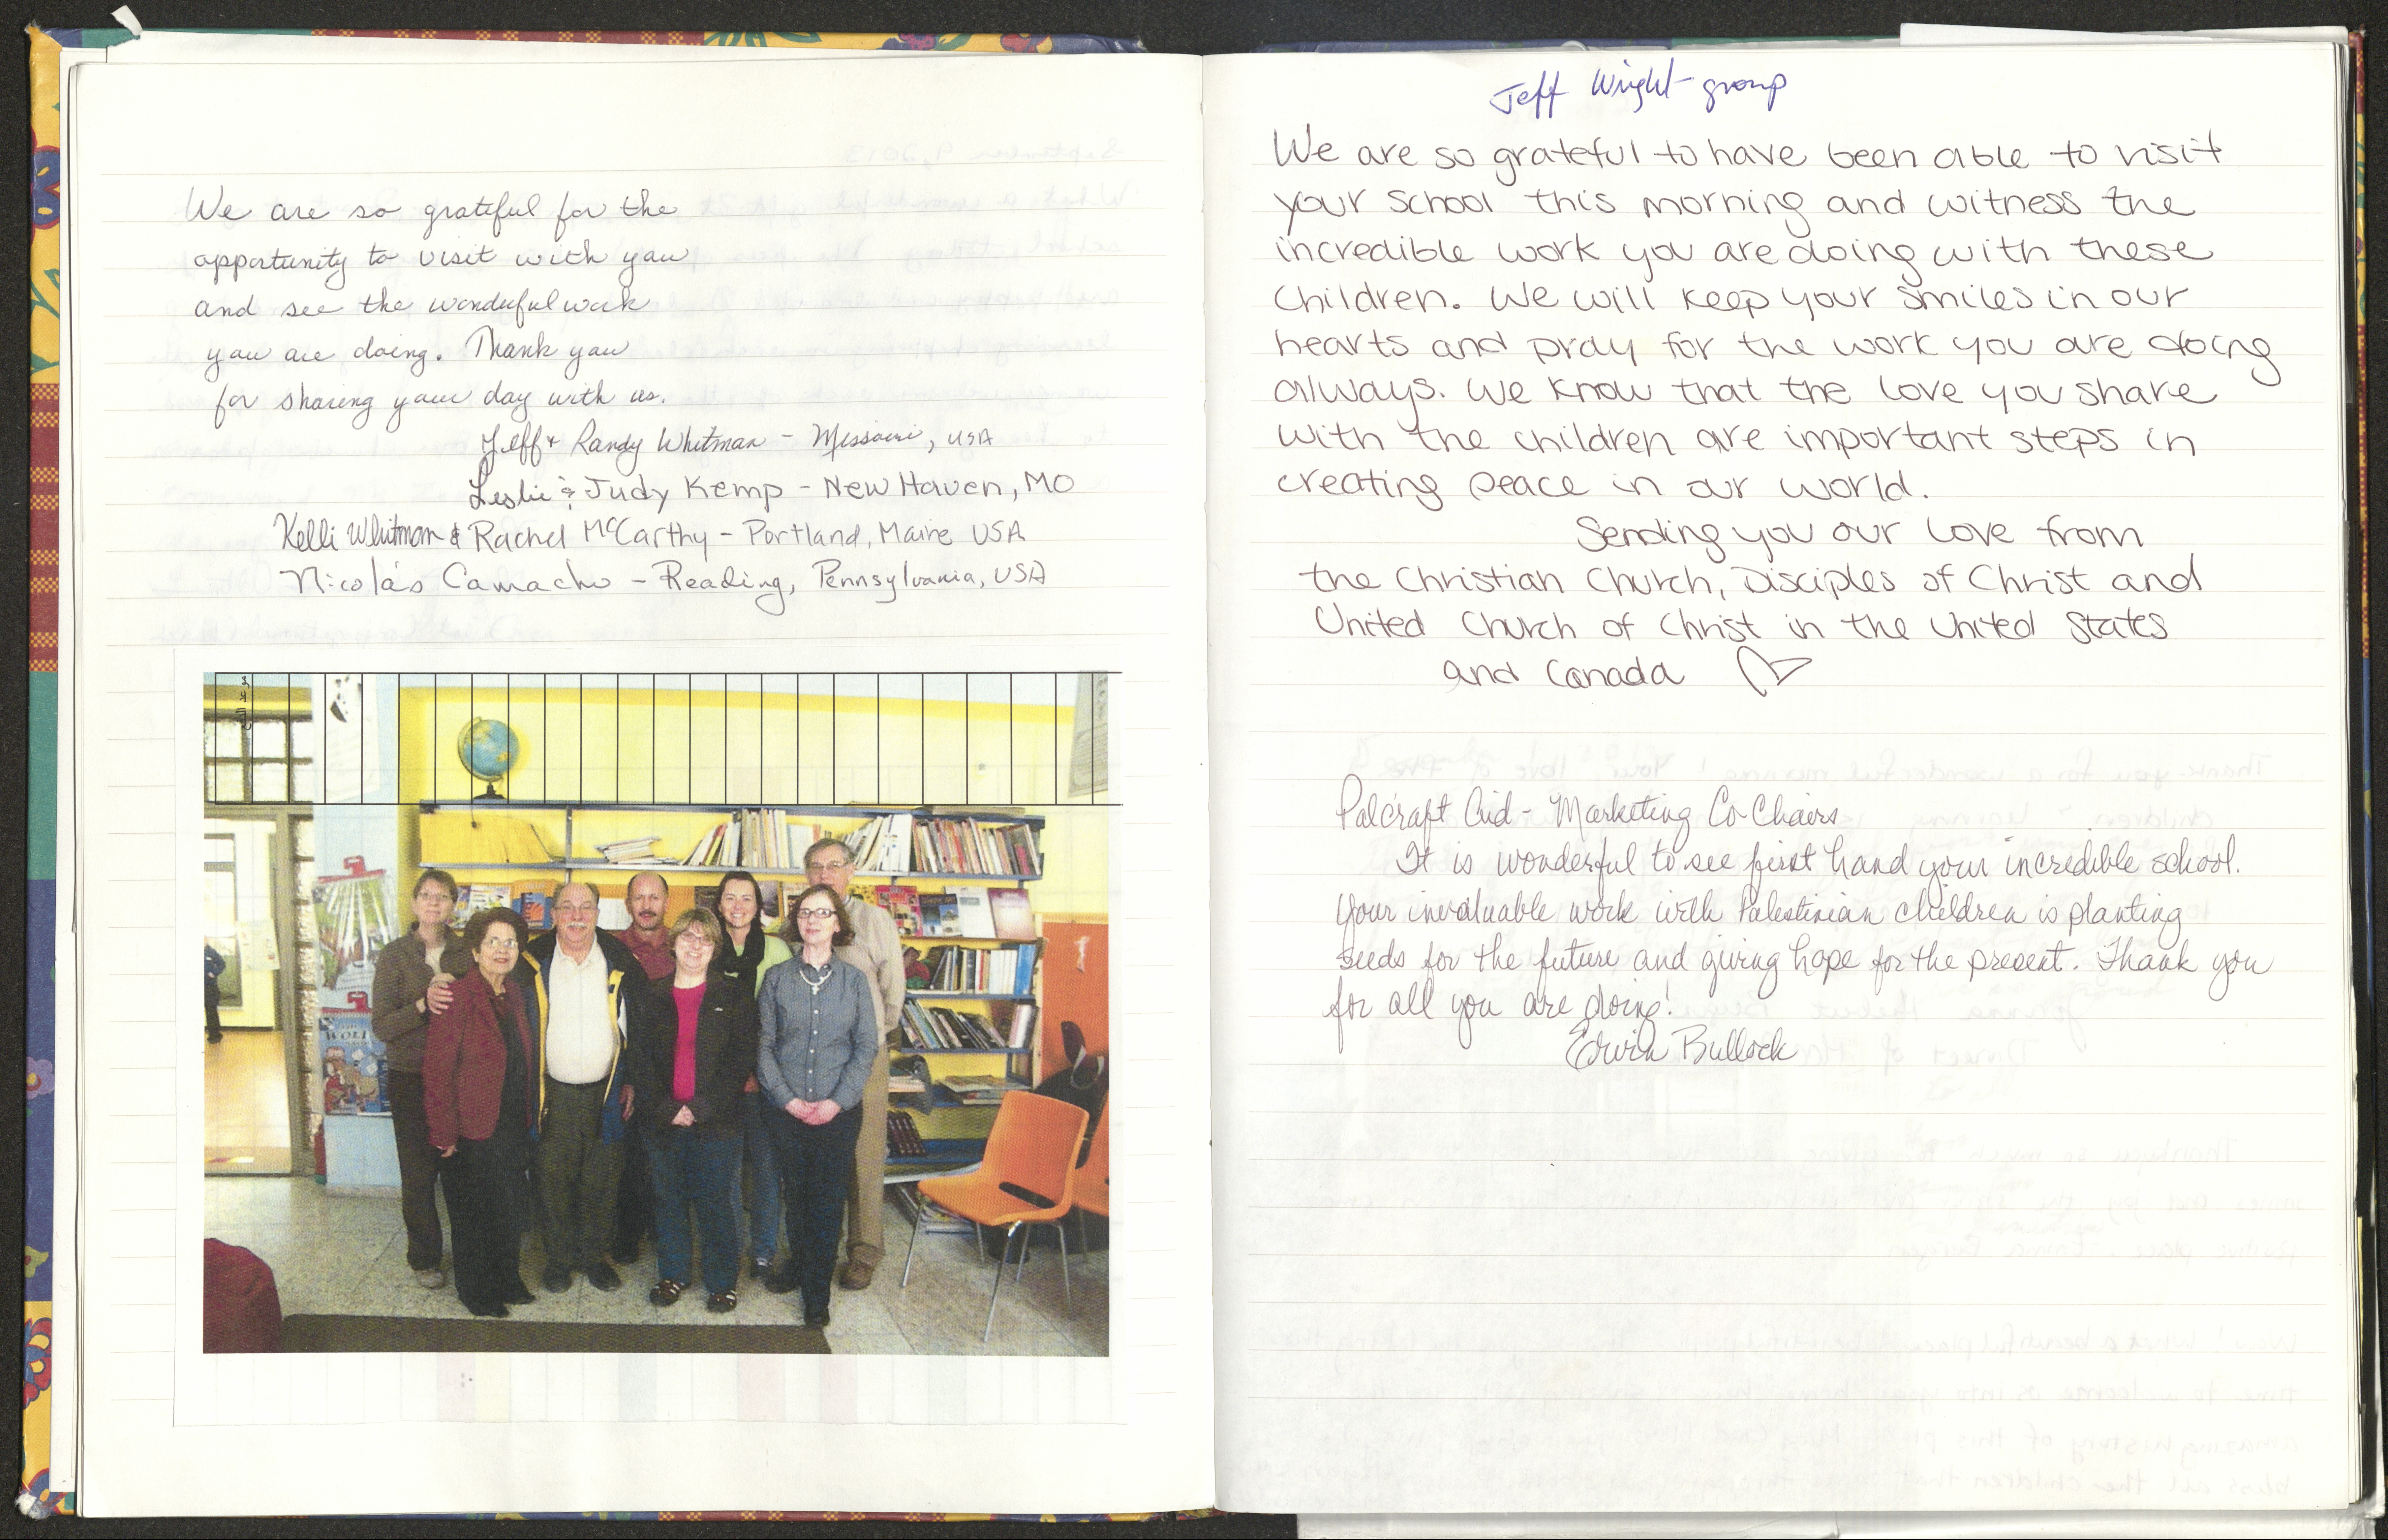 We are so grateful for the
opportunity to visit with you
and see the wonderful work
you are doing. Thank you
for sharing your day with us.
Jeff & Randy Whitman - Missouri, USA
Leslie & Judy Kemp - New Haven, MO
Kelli Whitman & Rachel McCarthy - Portland, Maine USA
Nicolás Camacho - Reading, Pennsylvania, USA
Jeff Wright group
We are so grateful to have been able to visit
your school this morning and witness the
incredible work you are doing with these
children. We will keep your smiles in our
hearts and pray for the work you are doing
always. We know that the love you share
with the children are important steps in
creating peace in our world.
Sending you our love from
the Christian Church, Disciples of Christ and
United Church of Christ in the United States
and Canada
Palcraft Aid - Marketing Co-Chairs
It is wonderful to see first hand your incredible school.
Your invaluable work with Palestinian children is planting
seeds for the future and giving hope for the present. Thank you
for all you are doing!
Erwin Bullock